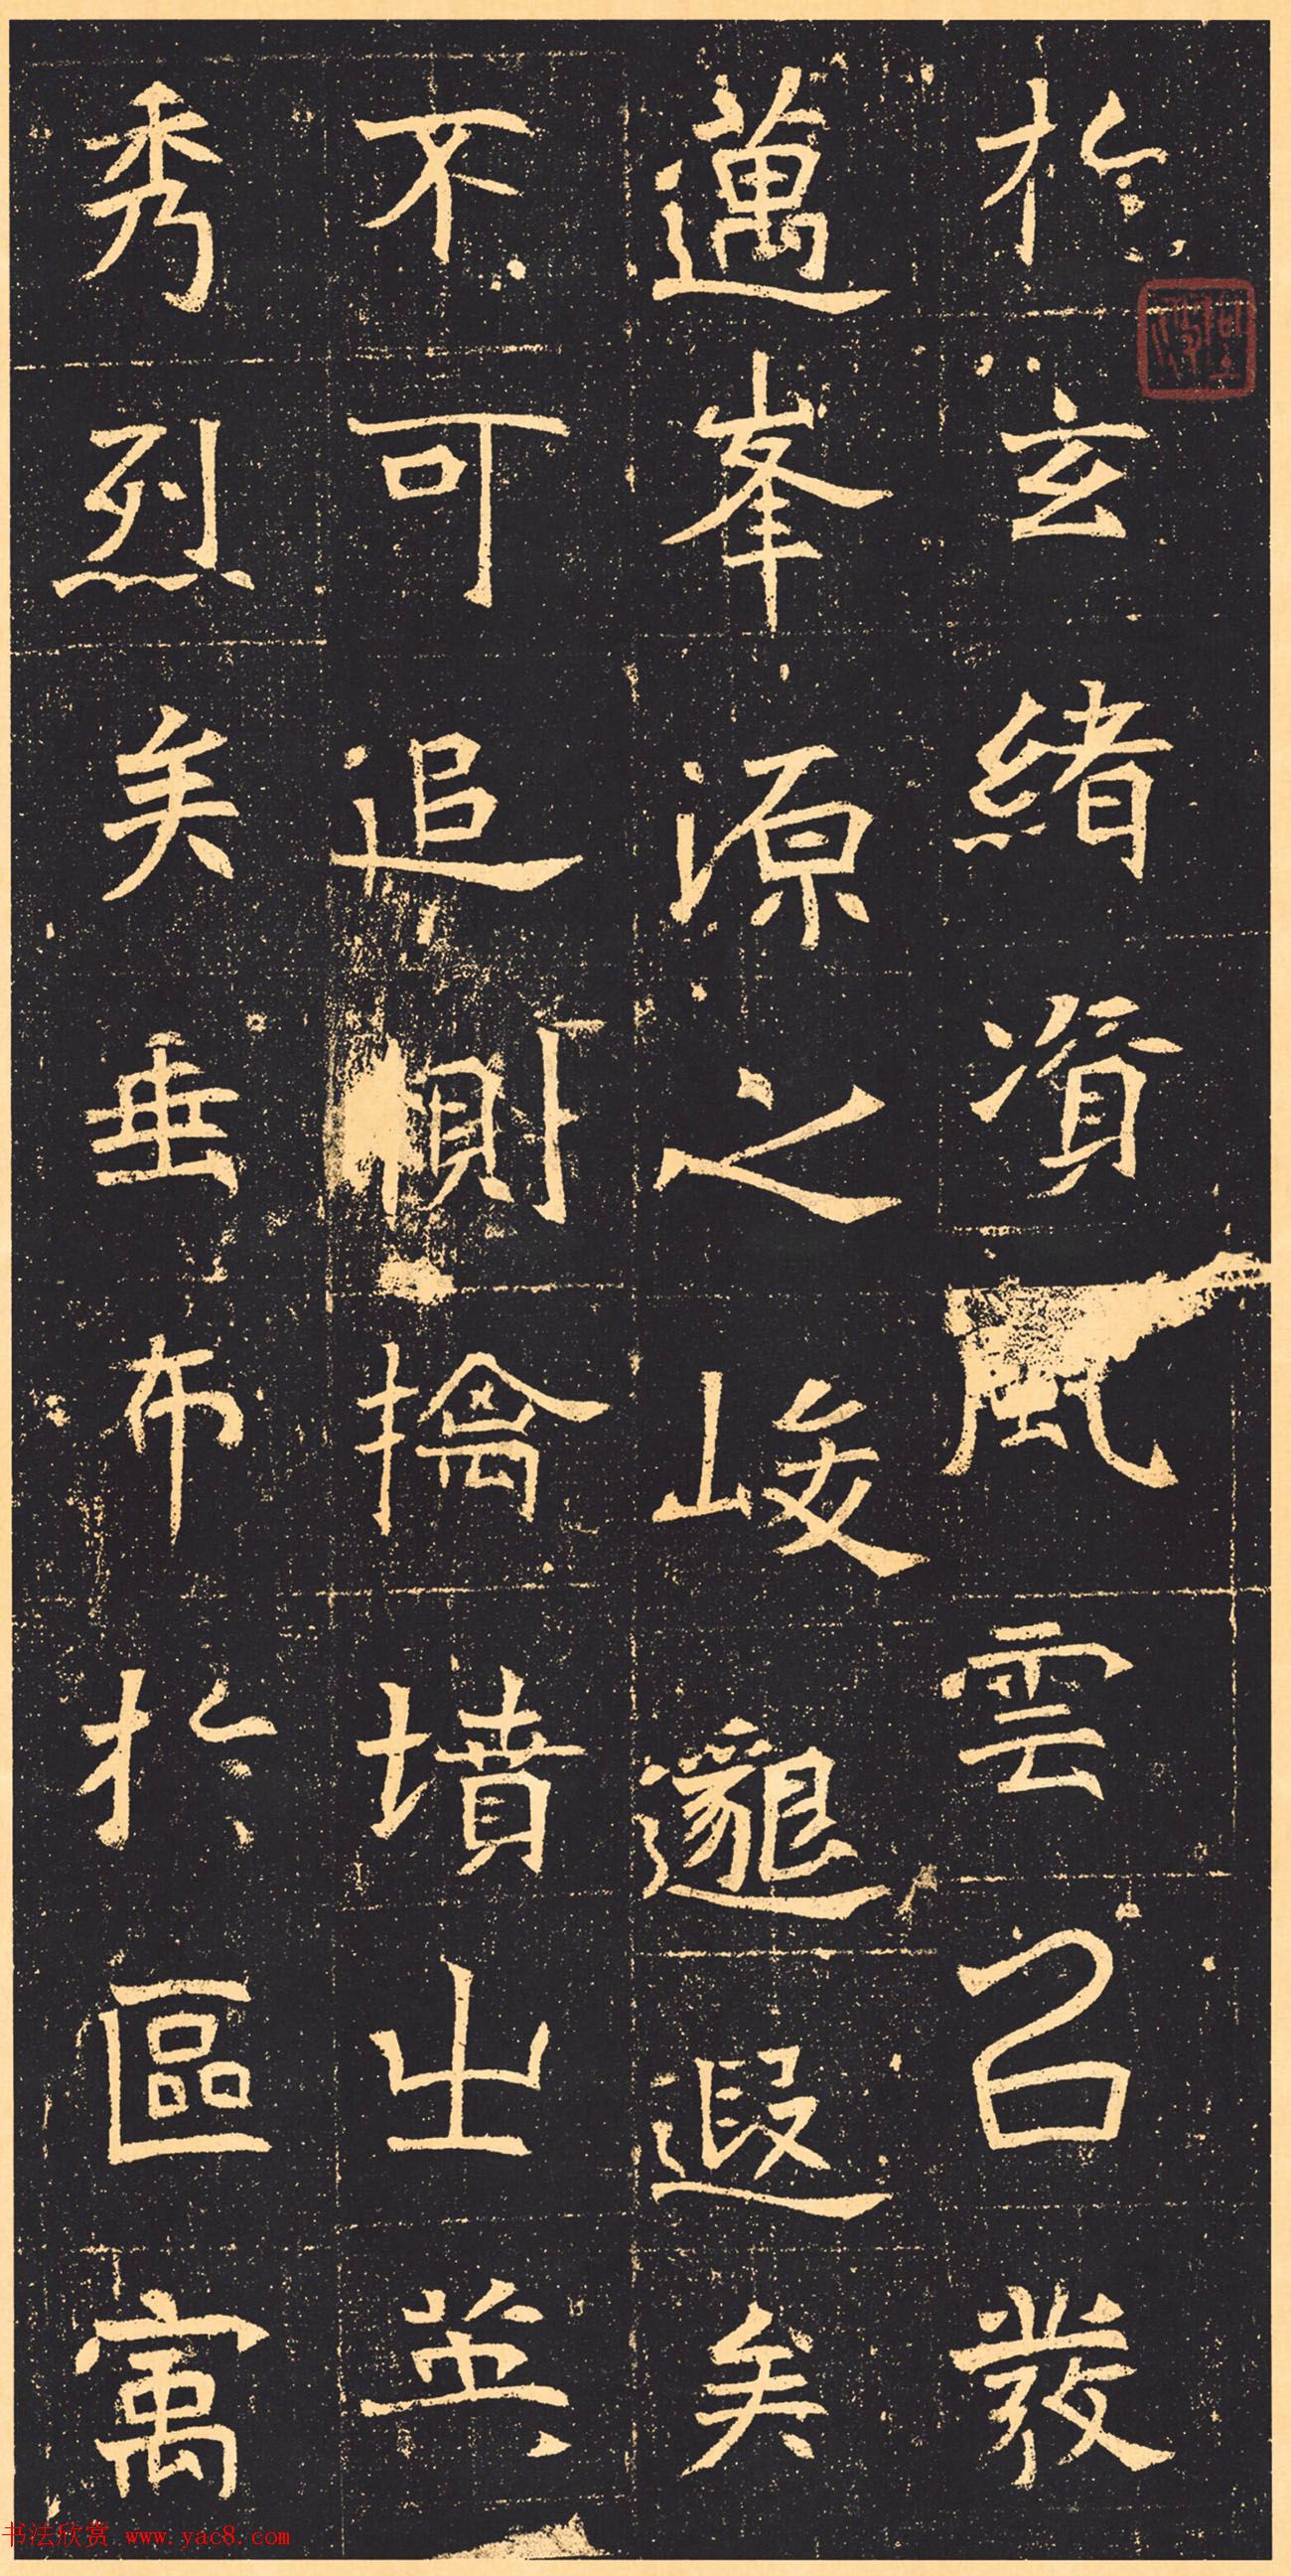 於玄緒資風雲以發
邁峯源之峻邈遐矣
不可追惻擒墳出並
秀烈矣垂布於區寓
书法欣赏 www.yac8.com